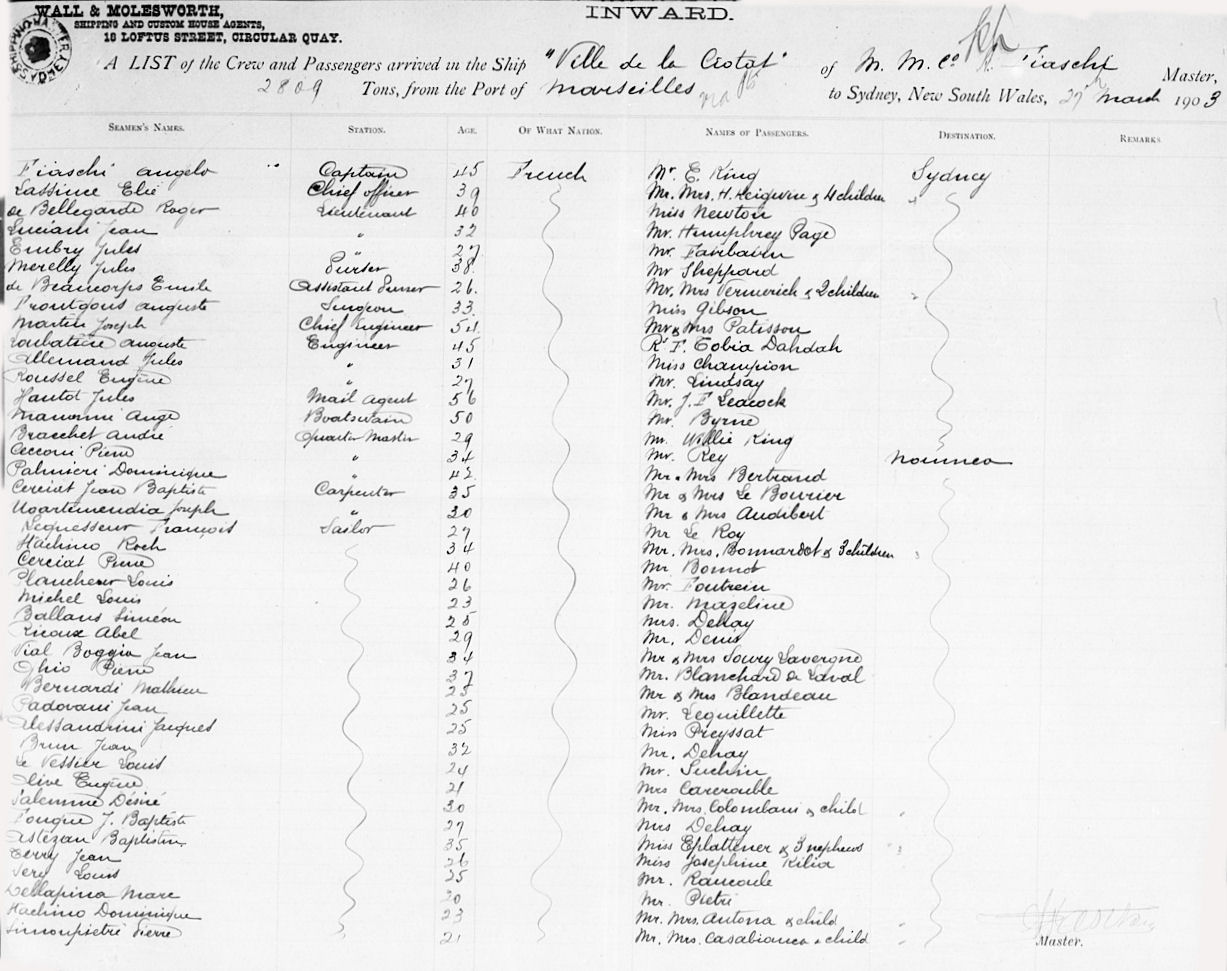 WALL & MOLESWORTH,
SHIPPING AND CUSTOM HOUSE AGENTS,
10 LOFTUS STREET, CIRCULAR QUAY.
INWARD.
A LIST of the Crew and Passengers arrived in the Ship "Ville de la Ciotat" of M. M. Co. A. Fiaschi Master,
2809 Tons, from the Port of Marseilles to Sydney, New South Wales, 27th March 1903
SEAMEN'S NAMES. STATION. AGE. OF WHAT NATION. NAMES OF PASSENGERS. DESTINATION. REMARKS
Fiaschi Angelo Captain 45 French Mr. E. King Sydney
Lassime Elie Chief officer 39 Mr. Mrs. H. & 4 children
de Bellegarde Roger Lieutenant 40 Miss Newton
Luciani Jean " 32 Mr. Humphrey Page
Embry Jules " 27 Mr. Fairbairn
Merelly Jules Purser 38. Mr Sheppard
de Beaucorps Emile Assistant Purser 26. Mr. Mrs Vermerich & 2 children
auguste Surgeon 33. Miss Gibson
Martin Joseph Chief Engineer 54. Mr & Mrs Patisson
auguste Engineer 45 Rd. F. Tobia Dahdah
Allemand Jules " 31 Miss Champion
Roussel Eugène " 27 Mr. Lindsay
Hautot Jules Mail Agent 56 Mr. J. F Leacock
Ange Boatswain 50 Mr. Byrne
Bracchet André Quarter Master 29 Mr. Willie King
Cecconi Pierre " 34 Mr. Rey Noumea
Palmieri Dominique " 42. Mr. Mrs Bertrand
Cerciat Jean Baptiste Carpenter 35 Mr & Mrs Le Bouvier
Ugartemendia Joseph " 30 Mr & Mrs Audibert
Lequesseur François Sailor 27 Mr Le Roy
Hachino Roch 34 Mr. Mrs. Bonnardot & 3 children
Cerciat Pierre 40 Mr Bonnot
Plancheur Louis 26 Mr. Foutrein
Michel Louis 23 Mr. Mazeline
Ballans Siméon 25 Mrs. Dehay
Ricoux Abel 29 Mr. Denis
Vial Boggia Jean 34 Mr & Mrs Soury Lavergne
Ohio Pierre 37 Mr. Blanchard de Laval
Bernardi Mathieu 25 Mr & Mrs Blandeau
Padovani Jean 25 Mr. Lequillette
Alessandrini Jacques 25 Miss Preyssat
Brun Jean 32 Mr. Dehay
Le Vessier Louis 24 Mr. Suchin
Olive Eugène 21 Mrs Carerouble
Salemme Désiré 30 Mr. Mrs. Colombani & child
Fouque J. Baptiste 27 Mrs Dehay
Astézan Baptistin 35 Miss Eplattener & 3 nephews
Terry Jean 26 Miss Josephine Kilia
Sery Louis 25 Mr. Rancoule
Dellapina Marc 20 Mr. Pietri
Hachino Dominique 23 Mr. Mrs. Antona & child
Simonpietri Pierre 21 Mr. Mrs. Casabianca & child
Master.